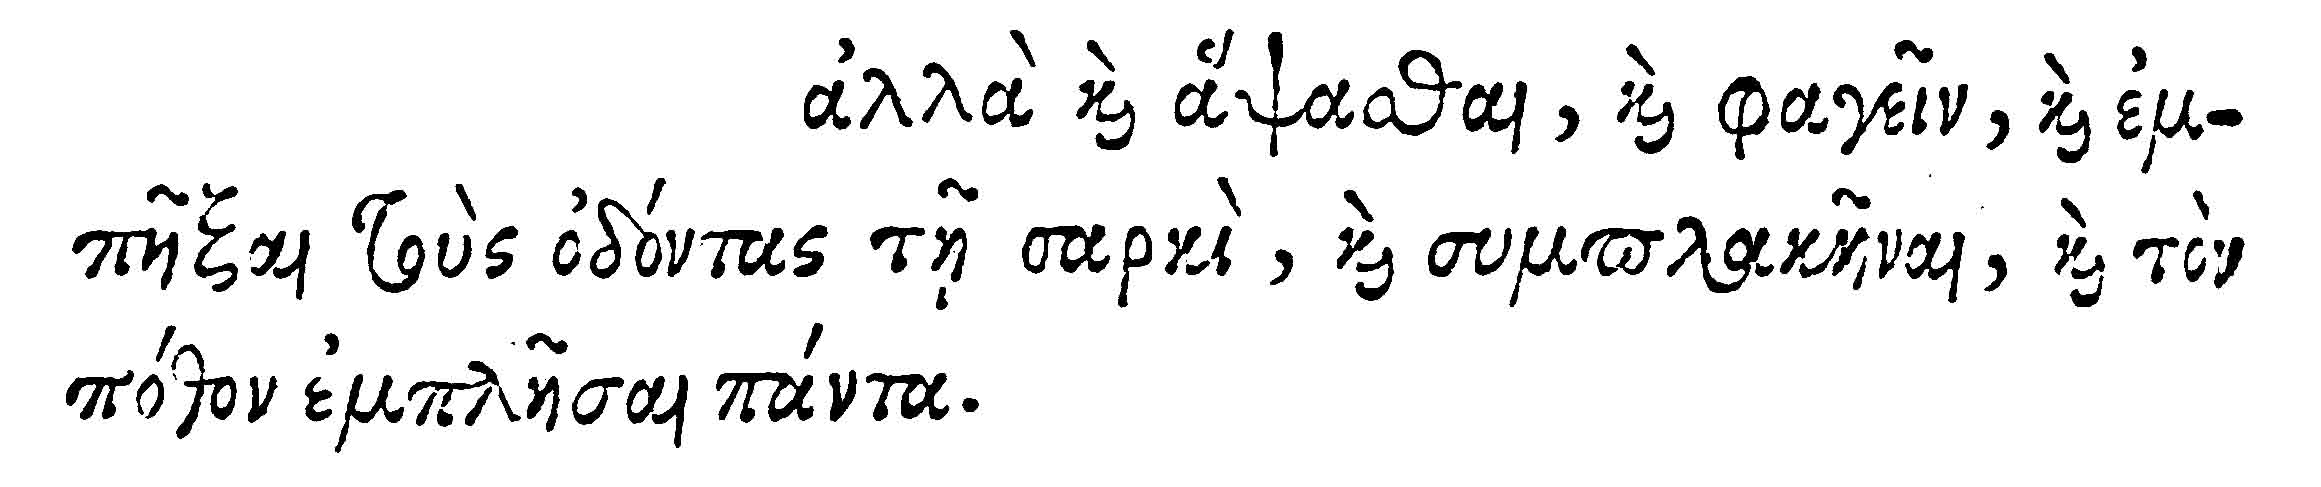 ἀλλὰ ϗ̀ ἅψασθαι, ϗ̀ φαγεῖν, ϗ̀ ἐμ-
πῆξαι τοὺς ὀδόντας τῇ σαρκὶ, ϗ̀ συμπλακῆναι, ϗ̀ τὸν
πόθον ἐμπλῆσαι πάντα.